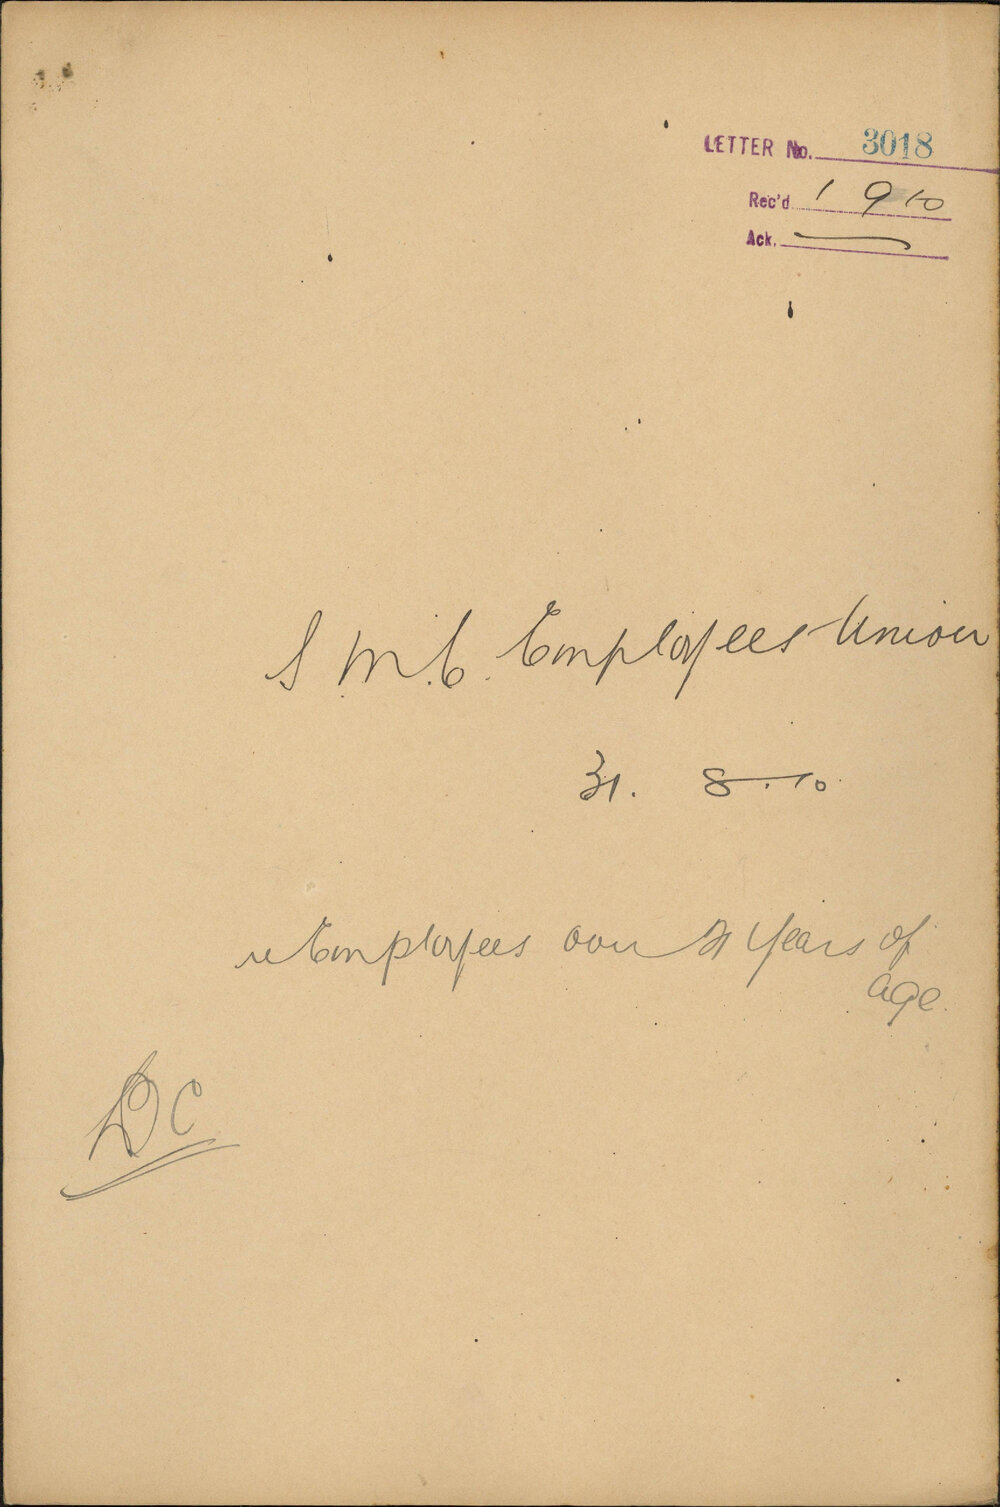 LETTER No. 3018
Rec'd 1 9 10
Ack.
S. M. C. Employees Union
31. 8. 10
re Employees over 21 Years of
age.
DC